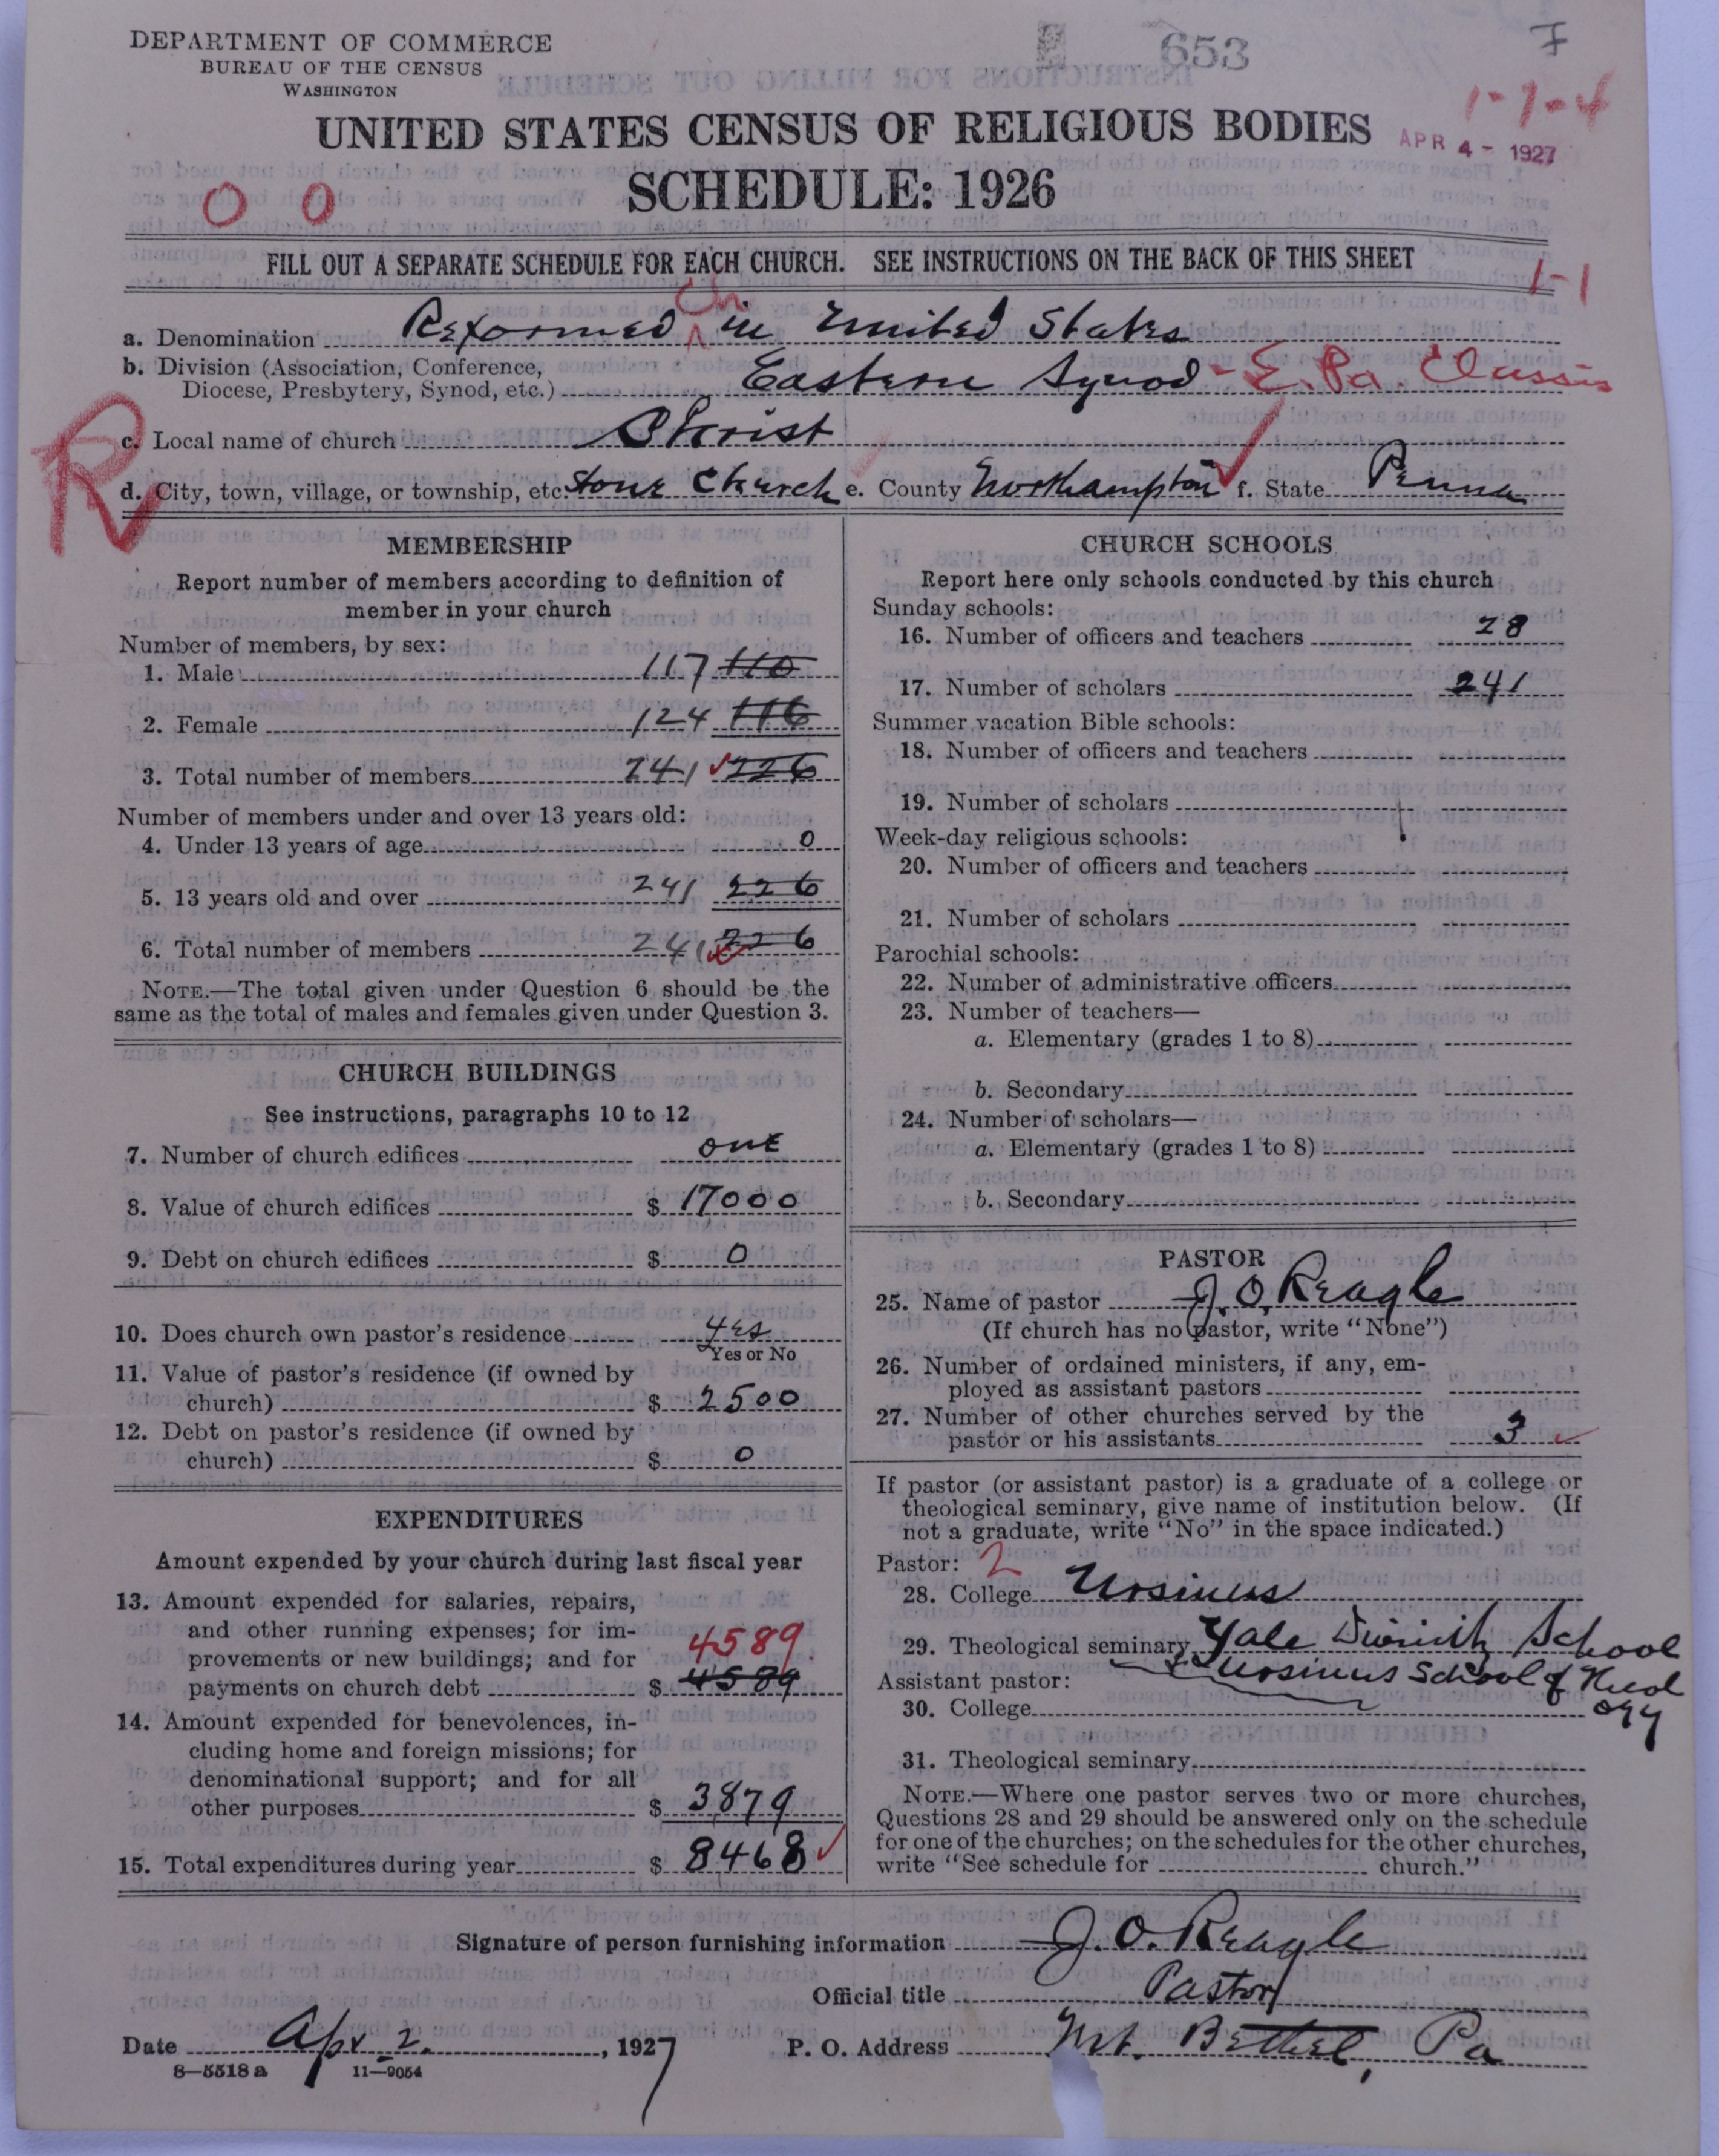 DEPARTMENT OF COMMERCE
BUREAU OF THE CENSUS
WASHINGTON
653
7
1-7-4
UNITED STATES CENSUS OF RELIGIOUS BODIES
APR 4 - 1927
SCHEDULE: 1926
0 0
FILL OUT A SEPARATE SCHEDULE FOR EACH CHURCH. SEE INSTRUCTIONS ON THE BACK OF THIS SHEET
1-1
a. Denomination Reformed Ch in United States
b. Division (Association, Conference,
Diocese, Presbytery, Synod, etc.) Eastern Synod - E. Pa. Classis
R
c. Local name of church Christ
d. City, town, village, or township, etc. Stone Church e. County Northampton f. State Penna
MEMBERSHIP
Report number of members according to definition of
member in your church
Number of members, by sex:
1. Male 117 110
2. Female 124 116
3. Total number of members 241 226
Number of members under and over 13 years old:
4. Under 13 years of age 0
5. 13 years old and over 241 226
6. Total number of members 241 226
NOTE.—The total given under Question 6 should be the
same as the total of males and females given under Question 3.
CHURCH BUILDINGS
See instructions, paragraphs 10 to 12
7. Number of church edifices one
8. Value of church edifices $ 17000
9. Debt on church edifices $ 0
10. Does church own pastor's residence yes
Yes or No
11. Value of pastor's residence (if owned by
church) $ 2500
12. Debt on pastor's residence (if owned by
church) $ 0
EXPENDITURES
Amount expended by your church during last fiscal year
13. Amount expended for salaries, repairs,
and other running expenses; for im-
provements or new buildings; and for 4589
payments on church debt $ 4589
14. Amount expended for benevolences, in-
cluding home and foreign missions; for
denominational support; and for all
other purposes $ 3879
15. Total expenditures during year $ 8468
CHURCH SCHOOLS
Report here only schools conducted by this church
Sunday schools:
16. Number of officers and teachers 28
17. Number of scholars 241
Summer vacation Bible schools:
18. Number of officers and teachers
19. Number of scholars
Week-day religious schools:
20. Number of officers and teachers
21. Number of scholars
Parochial schools:
22. Number of administrative officers
23. Number of teachers—
a. Elementary (grades 1 to 8)
b. Secondary
24. Number of scholars—
a. Elementary (grades 1 to 8)
b. Secondary
PASTOR
25. Name of pastor J. O. Reagle
(If church has no pastor, write "None")
26. Number of ordained ministers, if any, em-
ployed as assistant pastors
27. Number of other churches served by the
pastor or his assistants 3
If pastor (or assistant pastor) is a graduate of a college or
theological seminary, give name of institution below. (If
not a graduate, write "No" in the space indicated.)
Pastor: 2
28. College Ursinus
29. Theological seminary Yale Divinity School
Ursinus School of Theol
ogy
Assistant pastor:
30. College
31. Theological seminary
NOTE.—Where one pastor serves two or more churches,
Questions 28 and 29 should be answered only on the schedule
for one of the churches; on the schedules for the other churches,
write "See schedule for church."
Signature of person furnishing information J. O. Reagle
Official title Pastor
Date Apr 2, 1927 P. O. Address Mt. Bethel, Pa
8—5518 a 11—9054